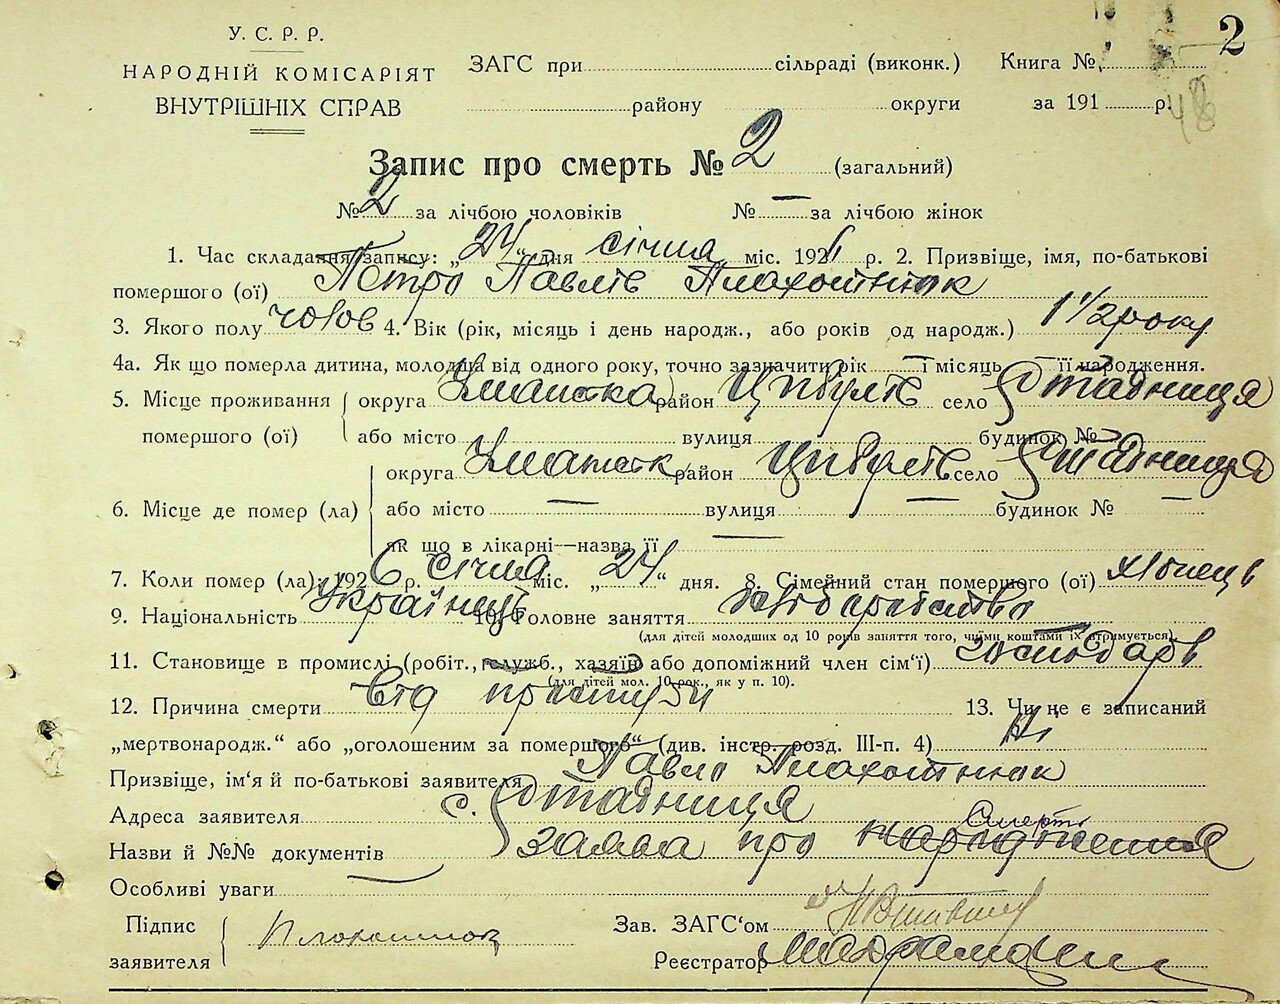 2
У. С. Р. Р.
НАРОДНІЙ КОМІСАРІЯТ
ВНУТРІШНІХ СПРАВ
ЗАГС при сільраді (виконк.) Книга №
району округи за 191 р.
48
Запис про смерть № 2 (загальний)
№ 2 за лічбою чоловіків № — за лічбою жінок
1. Час складання запису: „24“ дня січня міс. 192 р. 2. Призвіще, імя, по-батькові
помершого (ої) Петро Павлів Плахотнюк
3. Якого полу чолов 4. Вік (рік, місяць і день народж., або років од народж.) 1 1/2 року
4а. Як що померла дитина, молодша від одного року, точно зазначити рік — і місяць — її народження.
5. Місце проживання помершого (ої) округа Уманська район Цибулів село Стадниця
або місто вулиця будинок №
6. Місце де помер (ла) округа Уманськ район Цибулів село Стадниця
або місто — вулиця — будинок № —
як що в лікарні—назва її —
7. Коли помер (ла): 1926 р. січня міс. „24“ дня. 8. Сімейний стан помершого (ої) хлопець
9. Національність Українець 10. Головне заняття хліборобство
(для дітей молодших од 10 років заняття того, чиїми коштами їх утримується)
11. Становище в промислі (робіт., служб., хазяїн або допоміжний член сім‘ї) господарь
(для дітей мол. 10 рок., як у п. 10).
12. Причина смерти від простуди 13. Чи не є записаний
„мертвонародж.“ або „оголошеним за помершого“ (див. інстр. розд. III-п. 4) Ні
Призвіще, ім‘я й по-батькові заявителя Павло Плахотнюк
Адреса заявителя с. Стадниця
Назви й №№ документів заява про народження смерть
Особливі уваги
Підпис заявителя Плахотнюк Зав. ЗАГС‘ом
Реєстратор